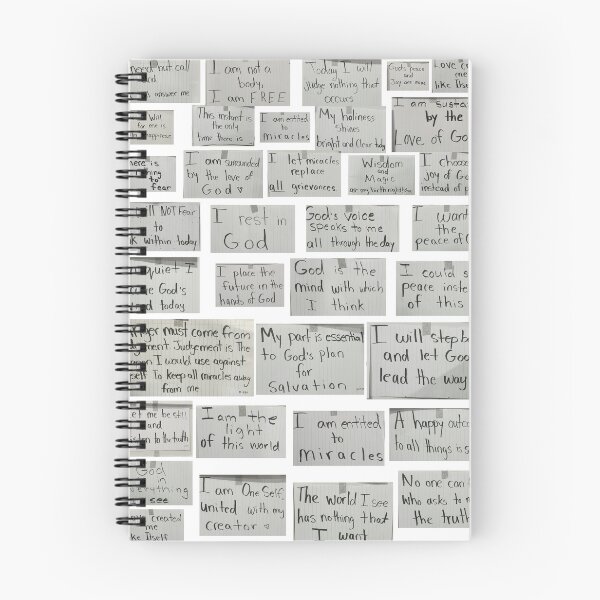 need but call
answer me
I am not a
body,
I am FREE
Today I will
judge nothing that
occurs
God's peace
and
Joy are mine
Love
me
like Itself
Will
for me is
happiness
This instant is
the only
time there is
I am entitled
to
miracles
My holiness
shines
bright and clear today
I am
by the
Love of
There is
to fear
I am surrounded
by the love of
God
I let miracles
replace
all grievances
Wisdom
and
Magic
are my birthright
I choose
joy of God
instead of
will NOT Fear
to
within today
I rest in
God
God's voice
speaks to me
all through the day
I want
the
peace of
quiet I
God's
today
I place the
future in the
hands of God
God is the
mind with which
I think
I could
peace
of this
must come from
Judgement is The
I would use against
To keep all miracles away
from me
My part is essential
to God's plan
for
Salvation
I will step
and let God
lead the way
let me be still
and
to the truth
I am the
light
of this world
I am entitled
to
miracles
A happy
to all things is
God
in
everything
see
I am One Self,
united with my
creator
The world I see
has nothing that
I want
No one can
who asks to
the truth
created
me
Itself